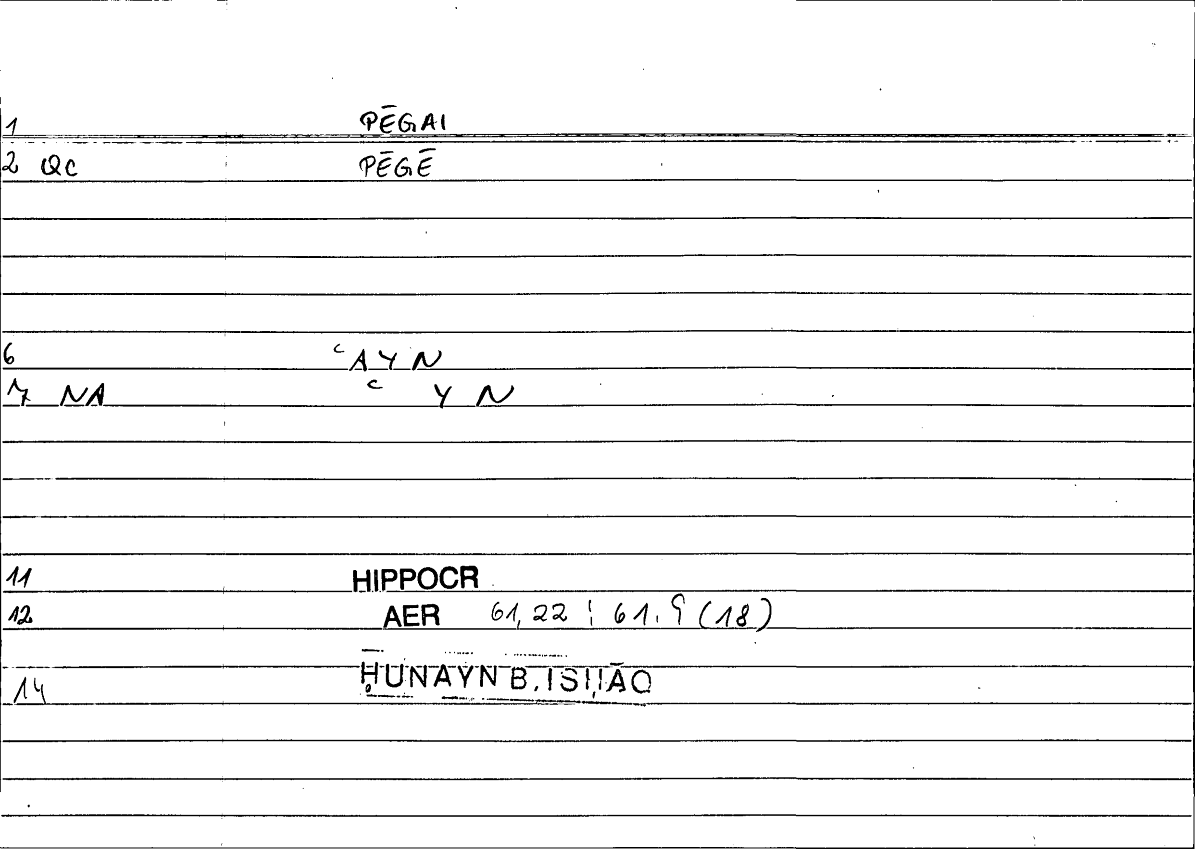 1 PĒGAI
2 QC PĒGĒ
6 ʿAYN
7 NA ʿ Y N
11 HIPPOCR
12 AER 61,22 ; 61.9 (18)
14 ḤUNAYN B. ISḤĀQ